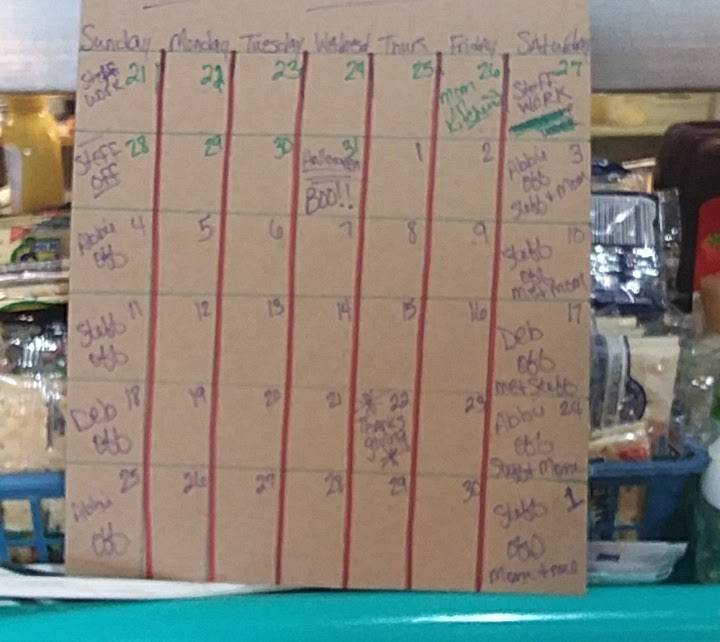 Sunday Monday Tuesday Wednesd Thurs Friday Saturday
Steff 21 22 23 24 25 26 27
work
Mom
Steff
WORK
Steff 28 29 30 31 1 2 3
OFF
Halloween
BOO!!
Abbie
off
Steff + Mom
Abbie 4 5 6 7 8 9 10
off
Steff
off
me + mom
Steff 11 12 13 14 15 16 17
off
Deb
off
me + Steff
Deb 18 19 20 21 22 23 24
off
Thanks
giving
Abbie
off
Mom
25 26 27 28 29 30 1
Abbie
off
Steff
off
Mom + me